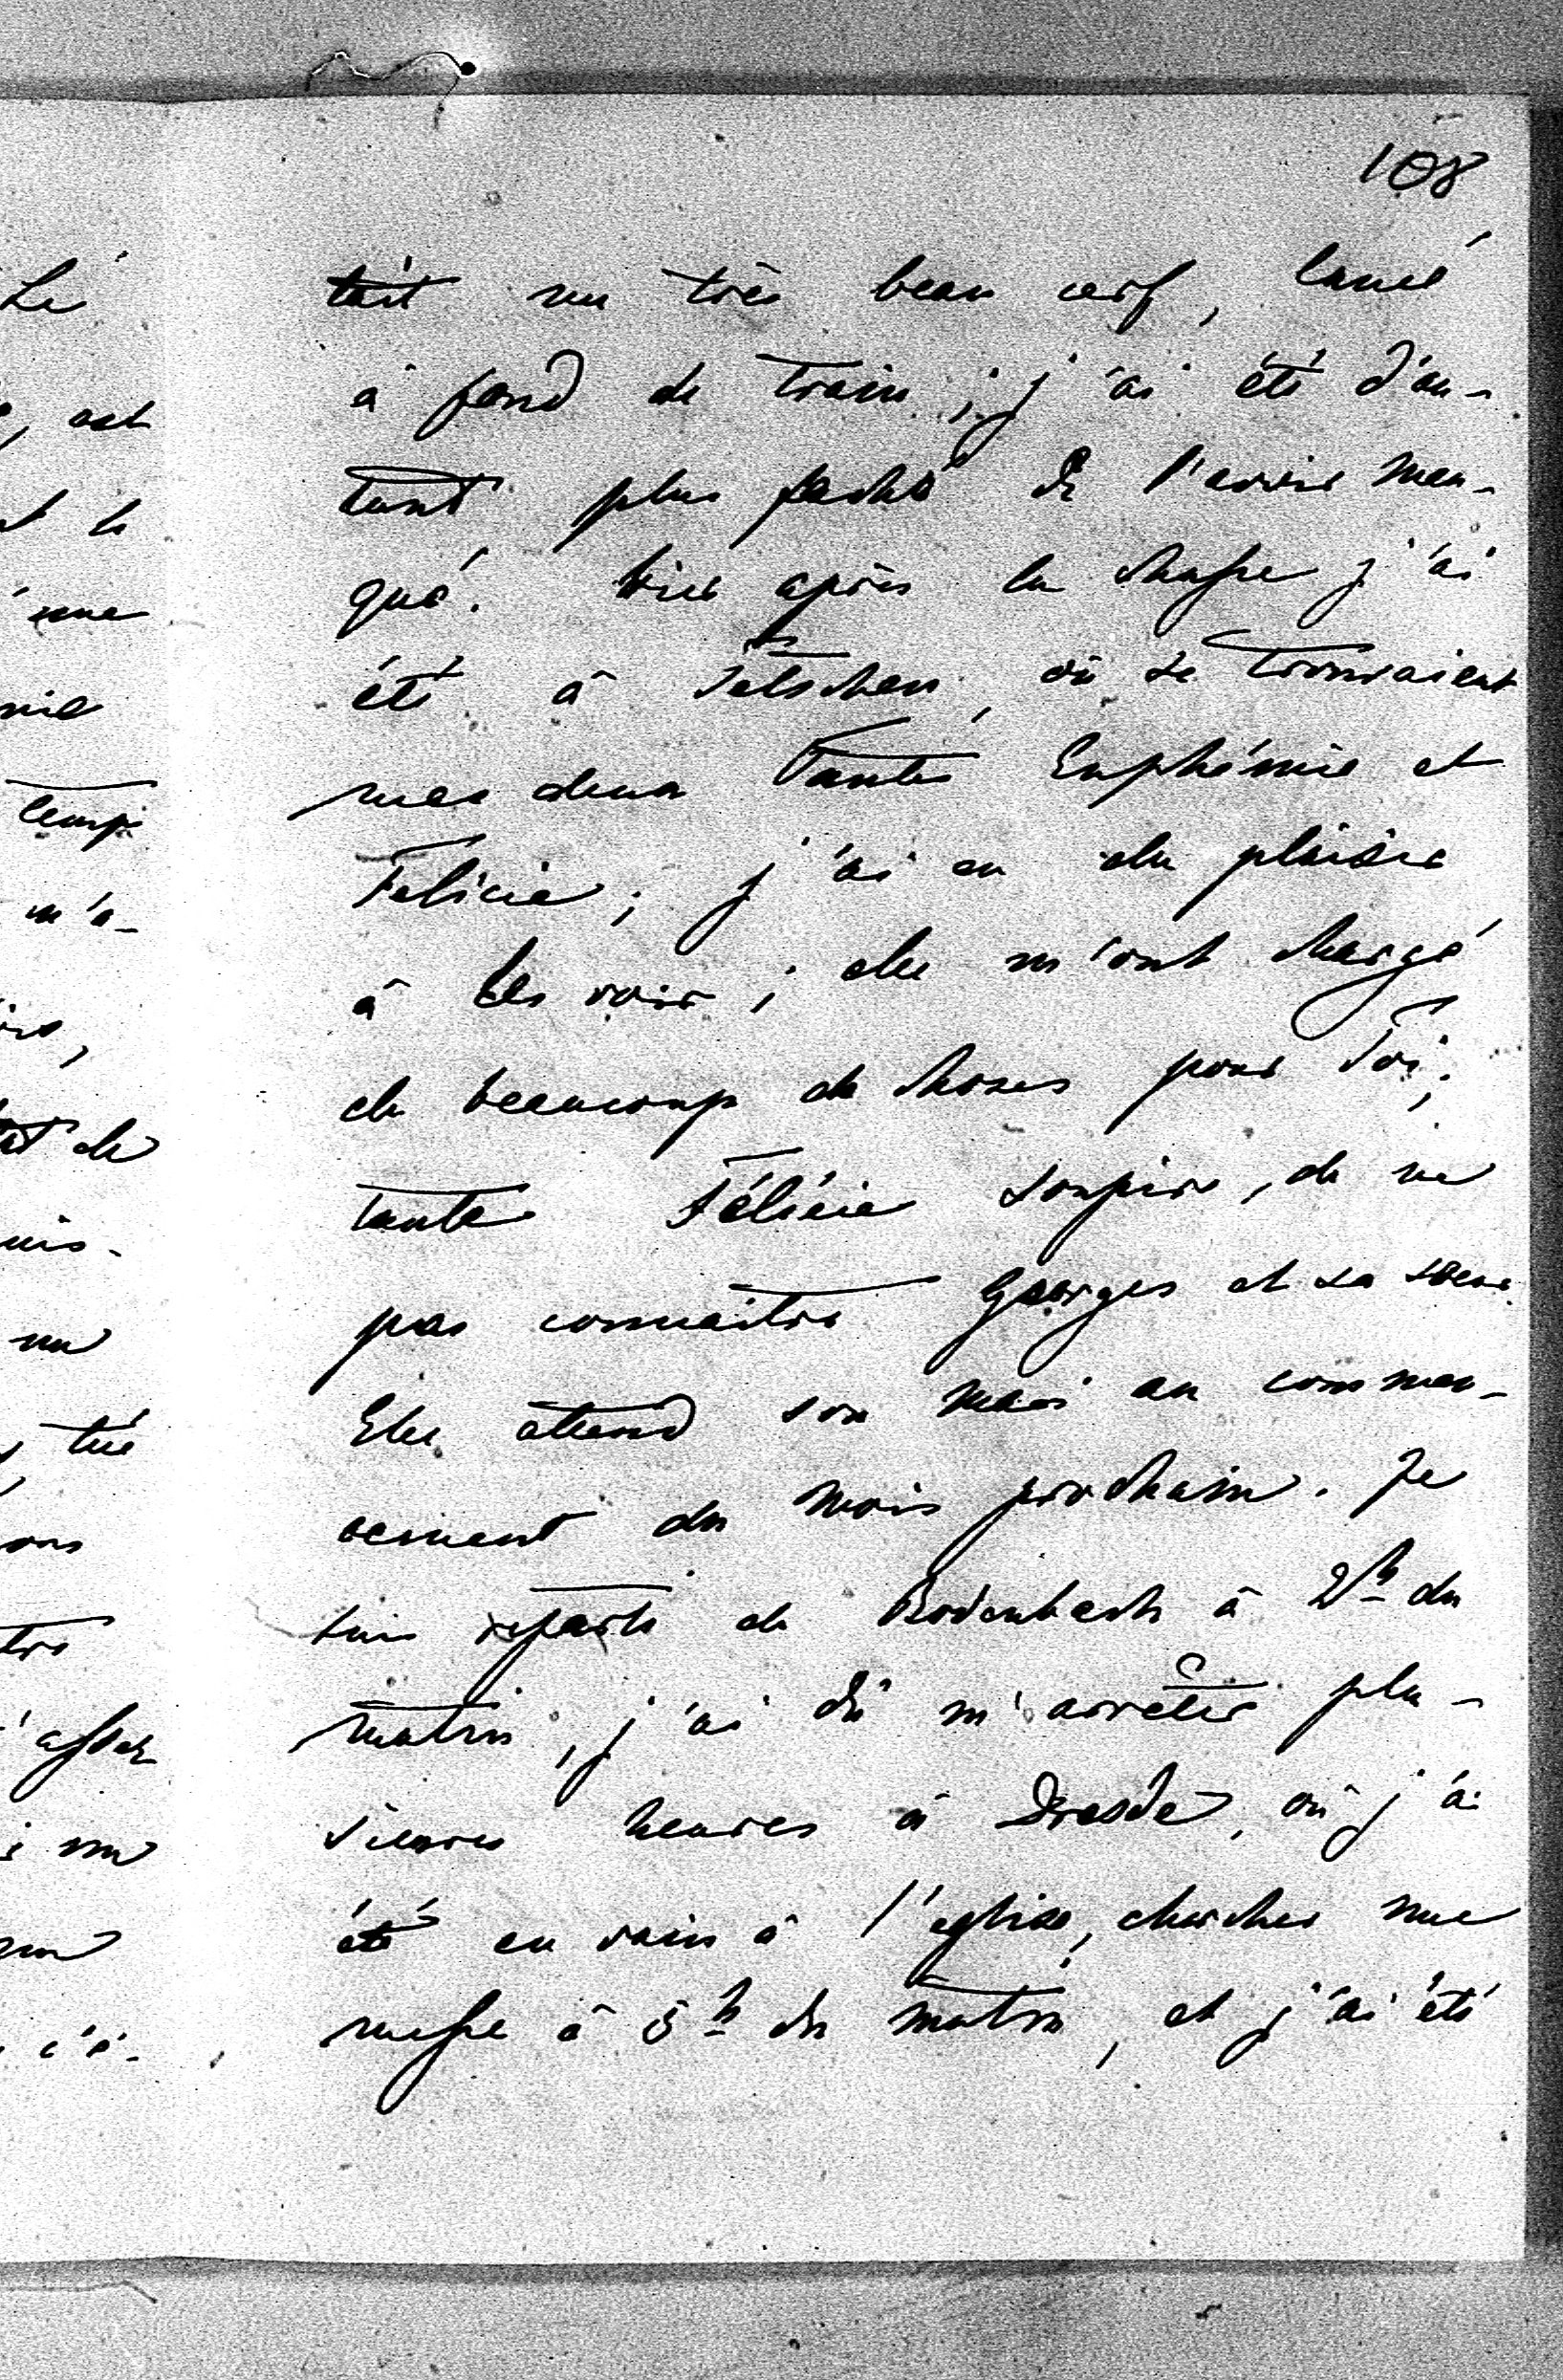 108
tait un très beau cerf, lancé
à fond de train; j'ai été d'au-
tant plus faché de l'avoir man-
qué. Hier après la chasse j'ai
été à Tetschen, où se trouvaient
mes deux Tantes Euphémie et
Felicie; j'ai eu du plaisir
à les voir; elles m'ont chargé
de beaucoup de choses pour Toi;
tante Félicie soupire, de ne
pas connaitre Georges et sa soeur.
Elle attend son mari au commen-
cement du mois prochain. Je
suis reparti de Bodenbach à 2h du
matin, j'ai dû m'arrêter plu-
sieurs heures à Dresde, où j'ai
été en vain à l'église, chercher une
messe à 5h du matin, et j'ai été